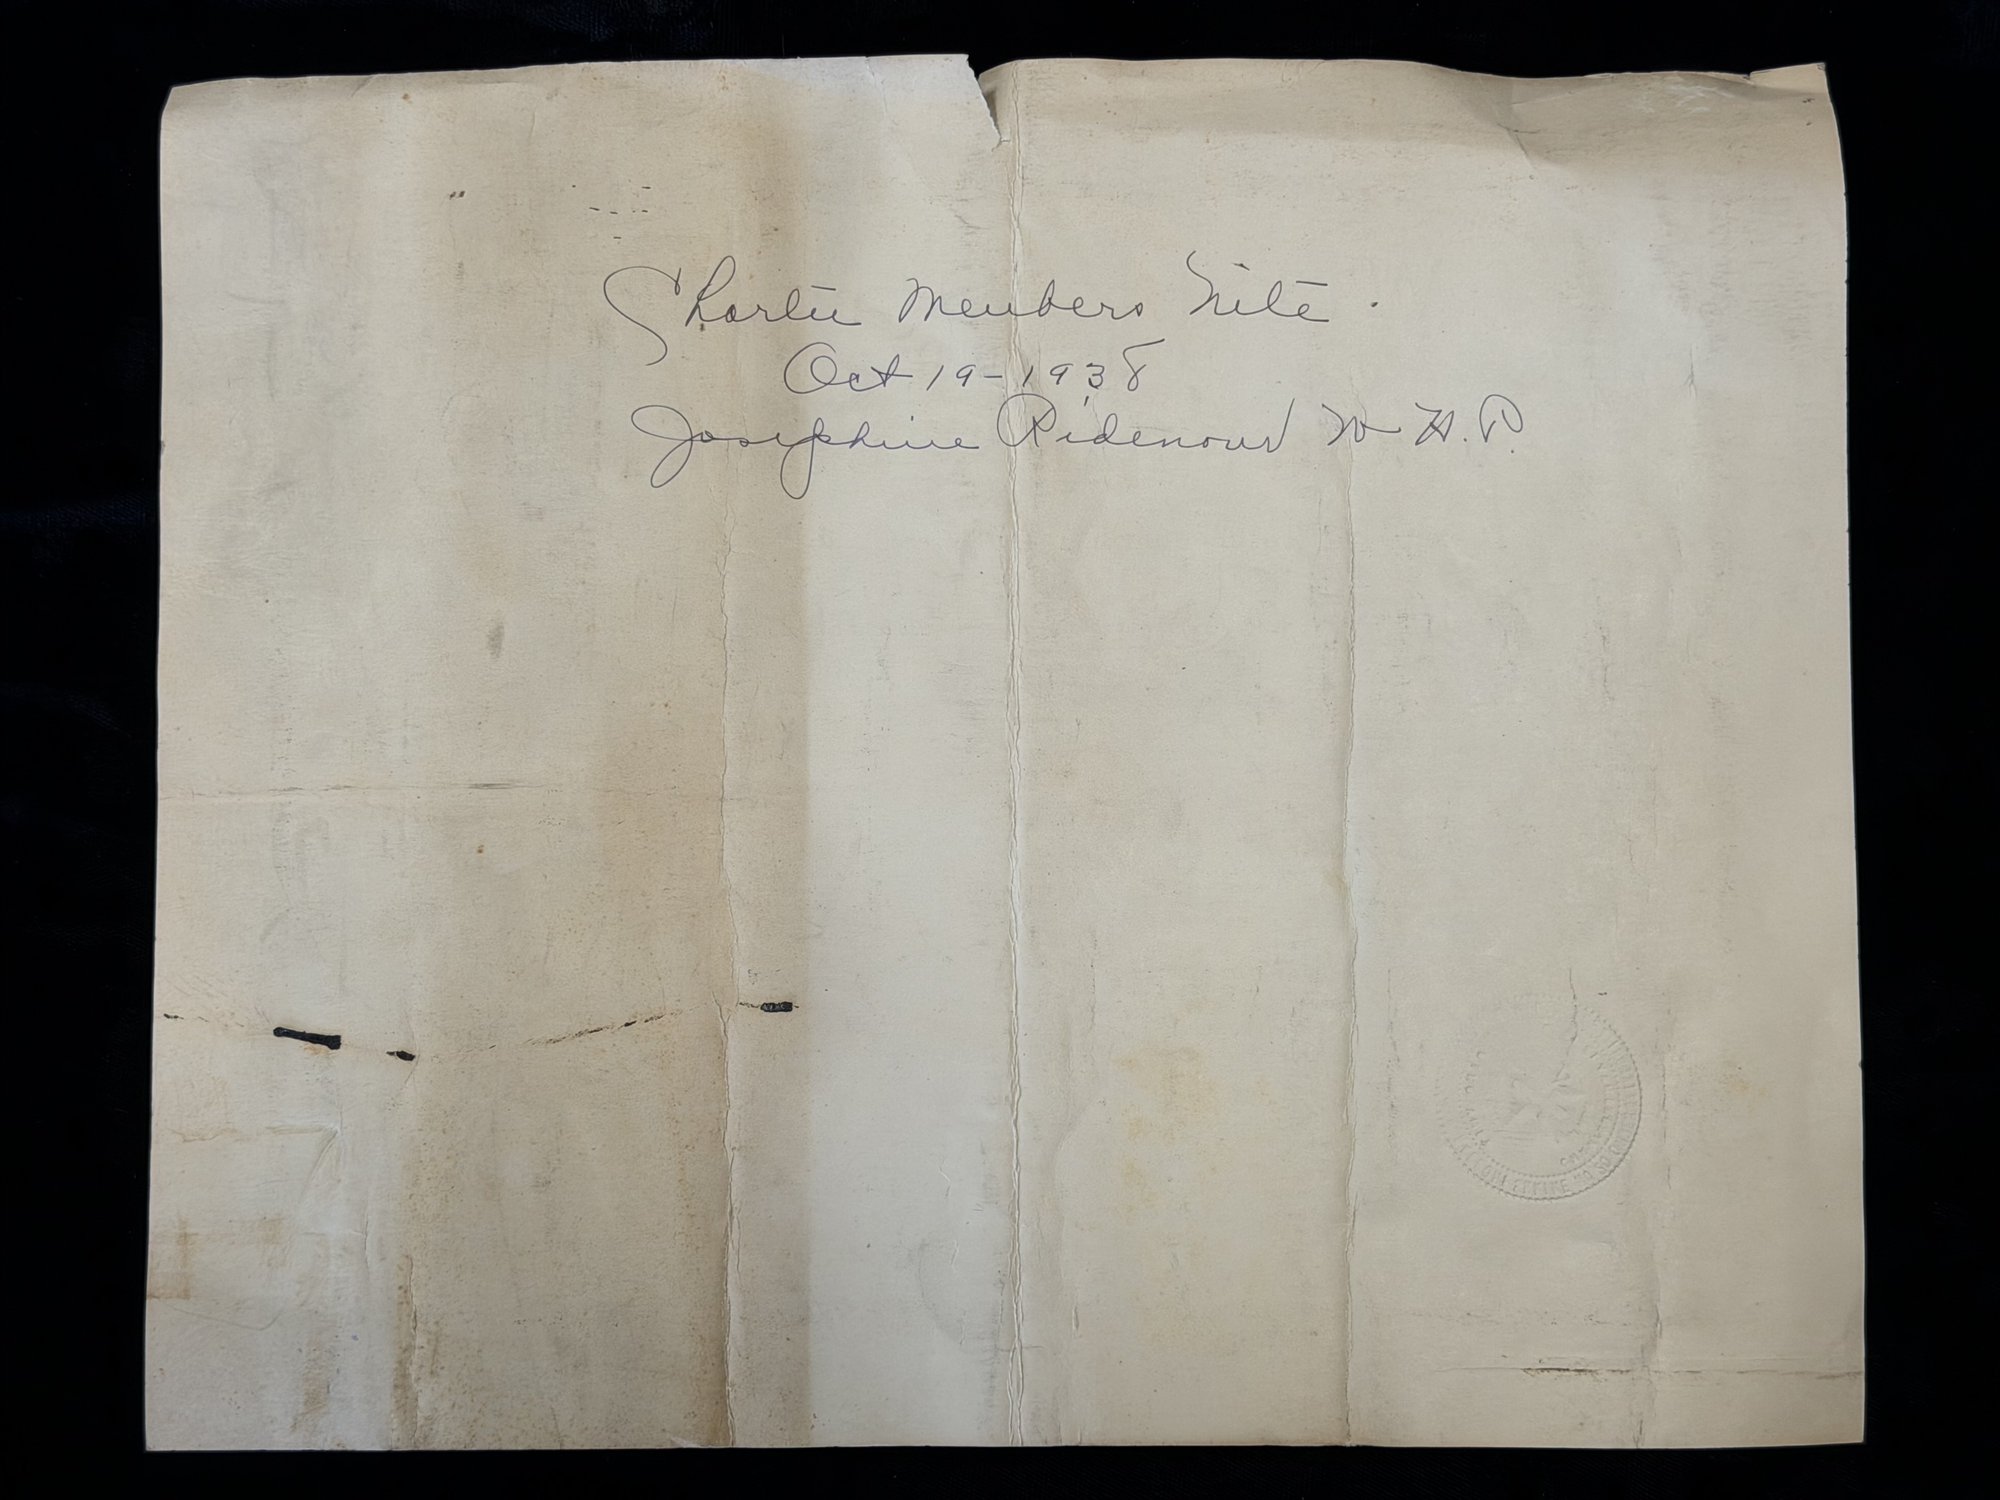 Charter Members Nite.
Oct 19-1938
Josephine Ridenour W.H.P.